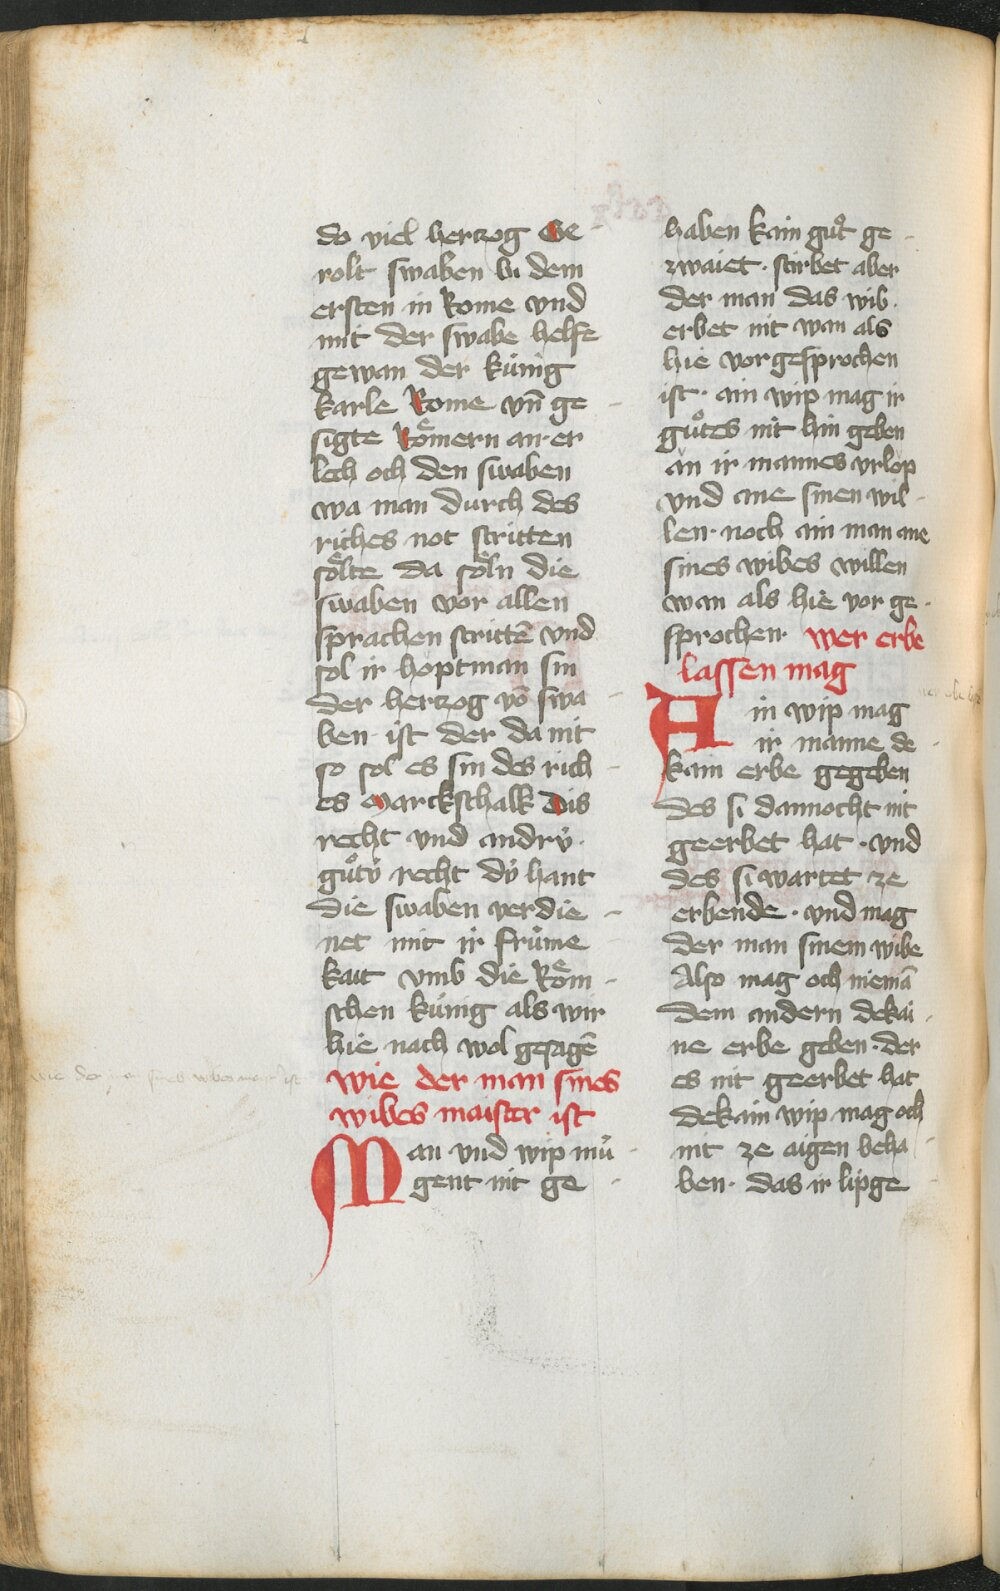 do viel herzog Ge
rolt swaben bi dem
ersten in Rome vnd
mit der swabe helfe
gewan der kúnig
karle Rome vn̄ ge
sigte Roͤmern an · er
lech och den swaben
wa man durch des
riches not stritten
soͤlte da soͤln die
swaben vor allen
sprachen strittē vnd
sol ir hoptman sin
der herzog vō swa
ben · ist der da nit
so sol es sin des rich
es Marckschalk Dis
recht vnd andrv́ ·
guͦtv́ recht dv́ hant
die swaben verdie
net mit ir fruͤme
kait vmb die Roͤm
schen kúnig als wir
hie nach wol gesagē
wie der man sines
wibes maister ist
Man vnd wip mú
gent nit ge
haben kain guͦt ge
zwaiet · stirbet aber
der man das wib ·
erbet nit wan als
hie vor gesprochen
ist · ain wip mag ir
guͦtes nit hin geben
an ir mannes vrlop
vnd ane sinen wil
len · noch ain man ane
sines wibes willen
wan als hie vor ge
sprochen · wer erbe
lassen mag
Ain wip mag
ir manne de
kain erbe gegeben
des si dannocht nit
geerbet hat · vnd
des si wartet ze
erbende · vnd mag
der man sinem wibe
Also mag och niemā
dem andern dekai
ne erbe geben · der
es nit geerbet hat
dekain wip mag och
nit ze aigen beha
ben · das ir lipge